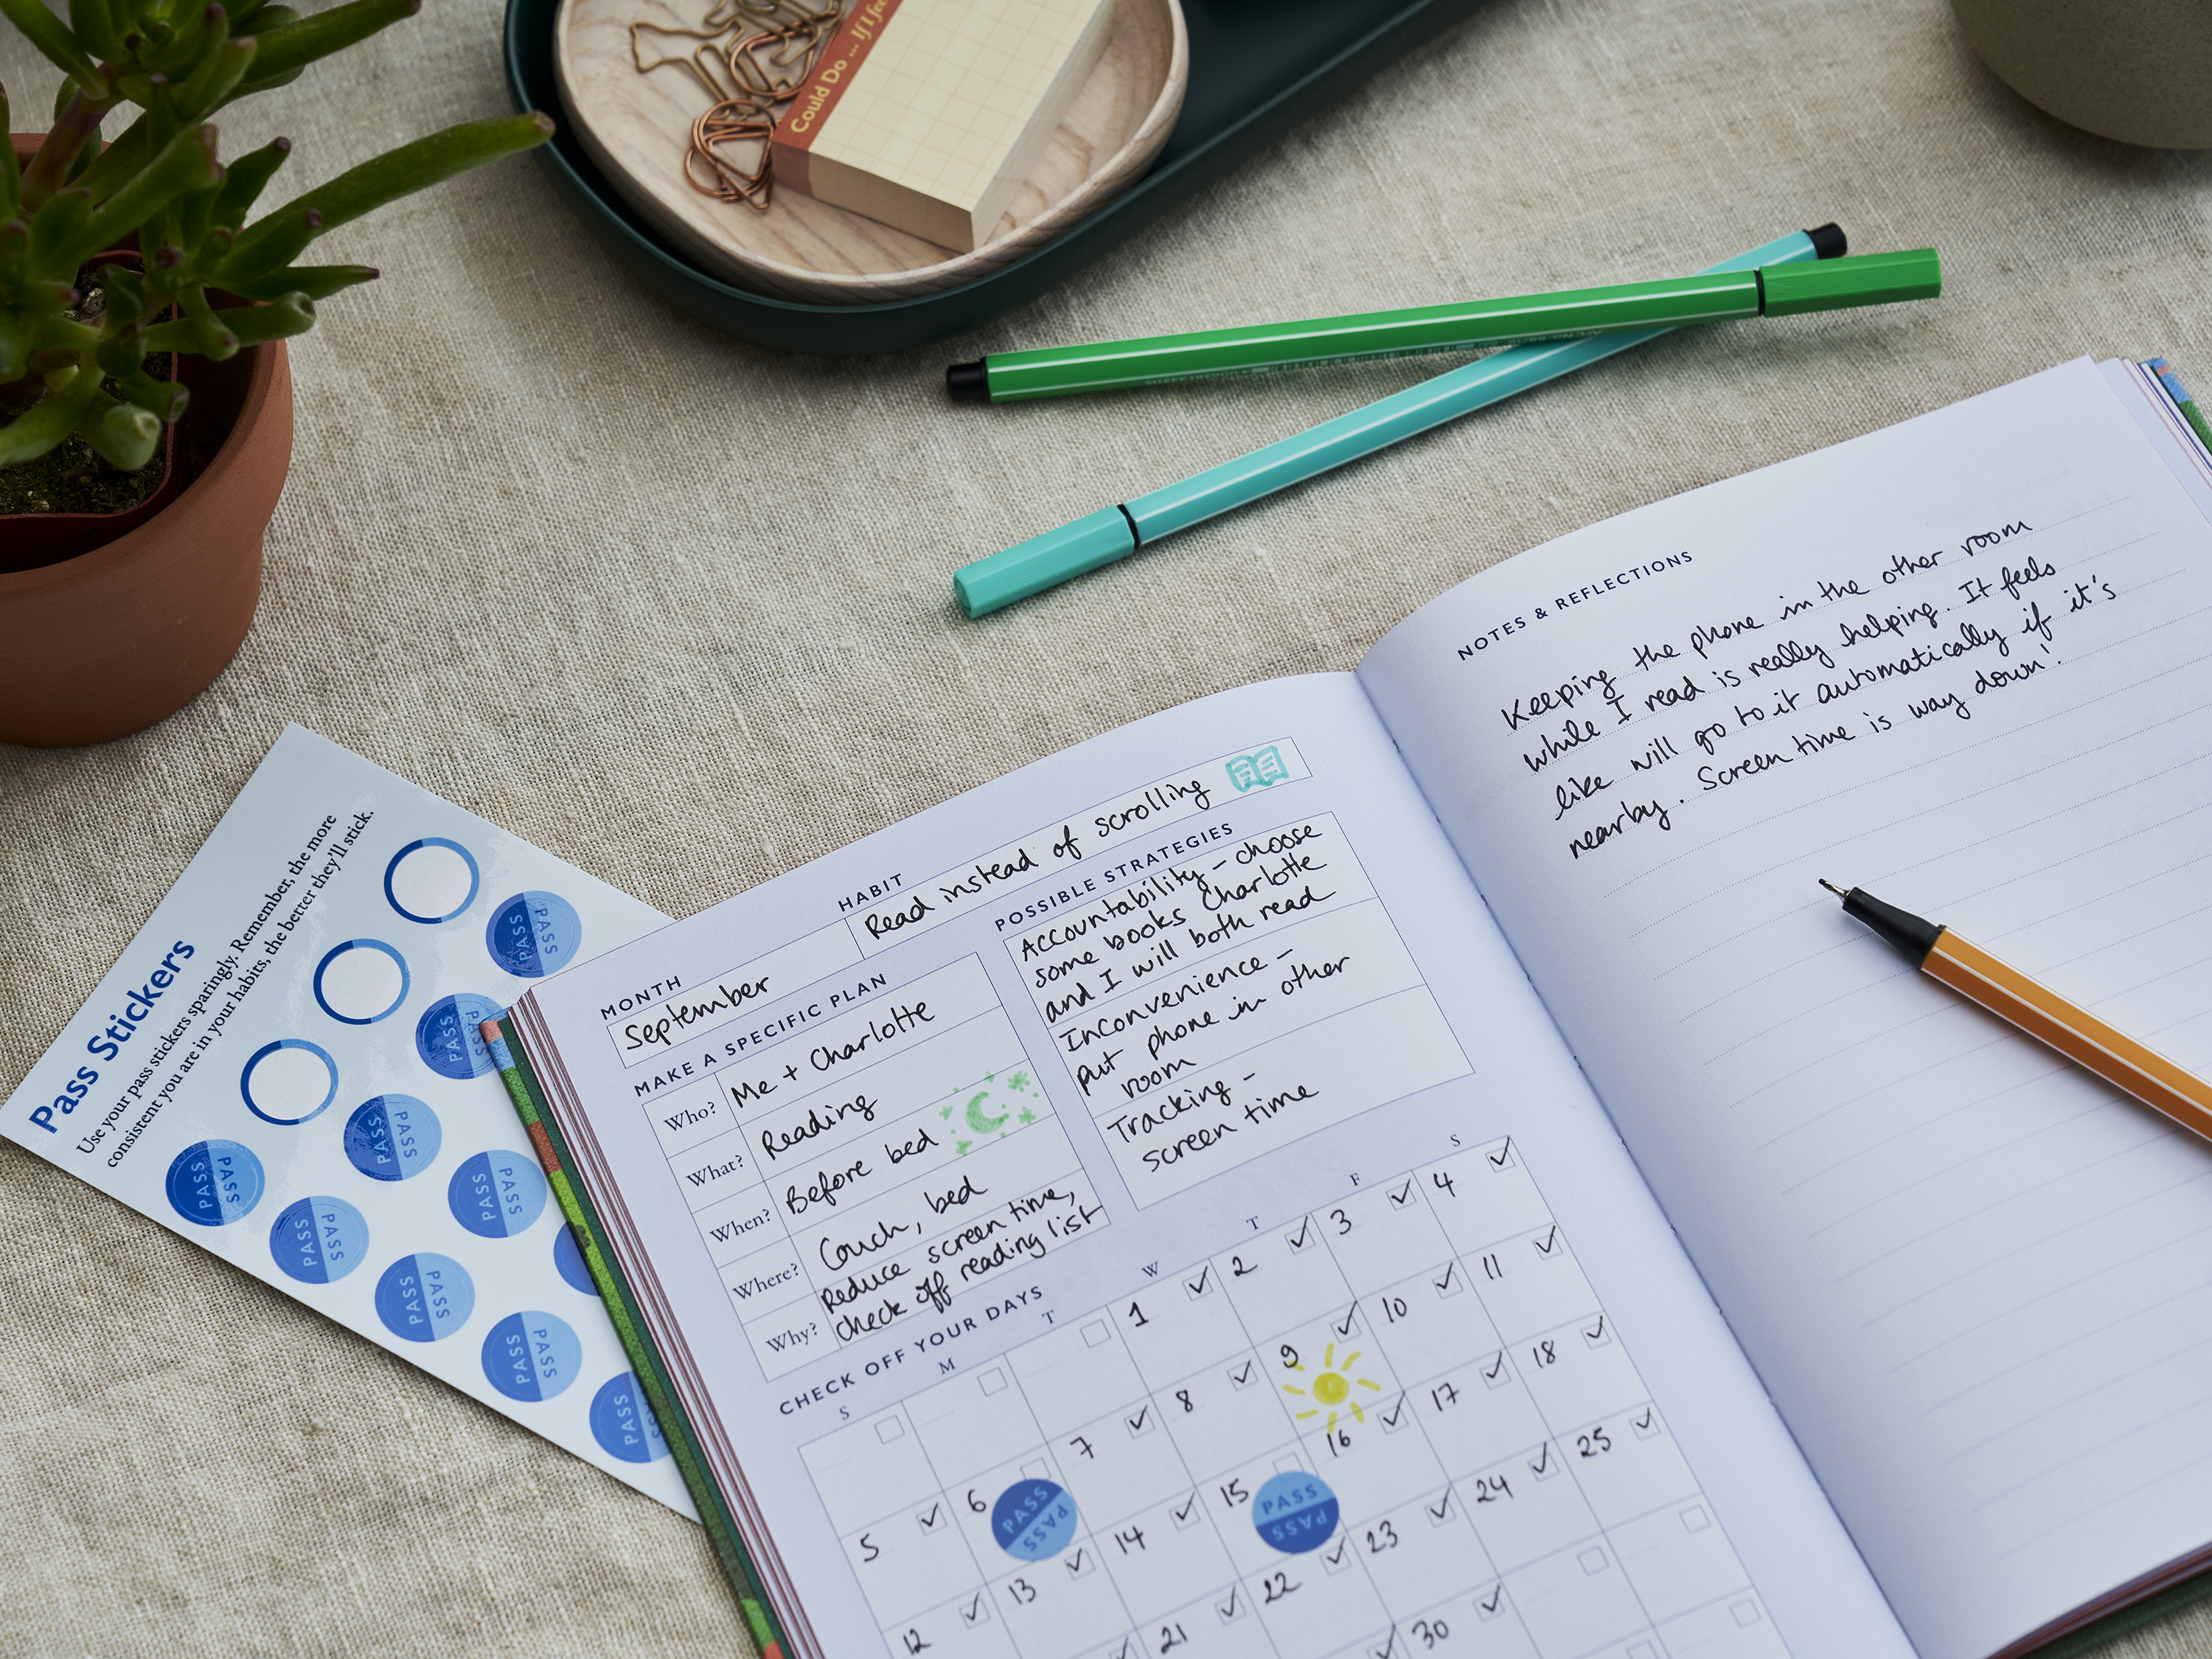 Could Do ... If I fee
Pass Stickers
Use your pass stickers sparingly. Remember, the more
consistent you are in your habits, the better they'll stick.
PASS PASS
PASS PASS
PASS PASS
PASS PASS
PASS PASS
PASS PASS
PASS PASS
PASS PASS
PASS PASS
MONTH
September
HABIT
Read instead of scrolling
MAKE A SPECIFIC PLAN
Who? Me + Charlotte
What? Reading
When? Before bed
Where? Couch, bed
Why? Reduce screen time,
check off reading list
POSSIBLE STRATEGIES
Accountability - choose
some books Charlotte
and I will both read
Inconvenience -
put phone in other
room
Tracking -
screen time
CHECK OFF YOUR DAYS
S M T W T F S
1 2 3 4
5 6 PASS PASS 7 8 9 10 11
12 13 14 15 PASS PASS 16 17 18
21 22 23 24 25
30
NOTES & REFLECTIONS
Keeping the phone in the other room
while I read is really helping. It feels
like will go to it automatically if it's
nearby. Screen time is way down!